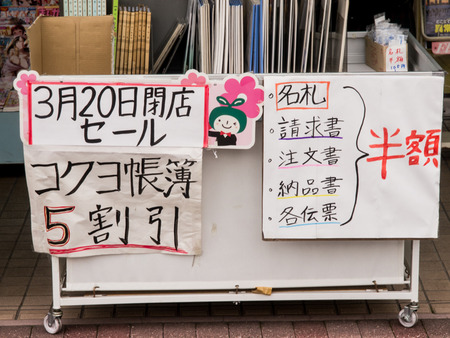 3月20日閉店
セール
コクヨ帳簿
5割引
・名札
・請求書
・注文書
・納品書
・各伝票
半額